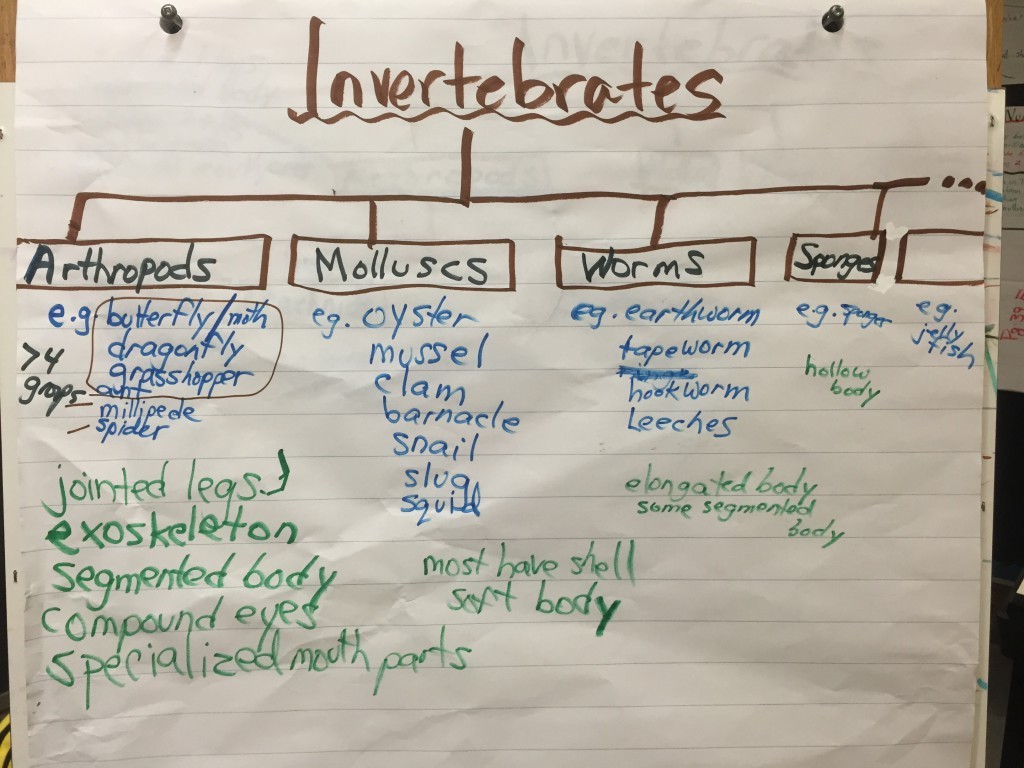 Invertebrates
Arthropods
e.g butterfly/moth
dragonfly
grasshopper
ant
millipede
spider
>4
groups
jointed legs
exoskeleton
segmented body
compound eyes
specialized mouth parts
Molluscs
eg. oyster
mussel
clam
barnacle
snail
slug
squid
most have shell
soft body
Worms
eg. earthworm
tapeworm
hookworm
Leeches
elongated body
some segmented
body
Sponges
e.g.
hollow
body
e.g.
jelly
fish